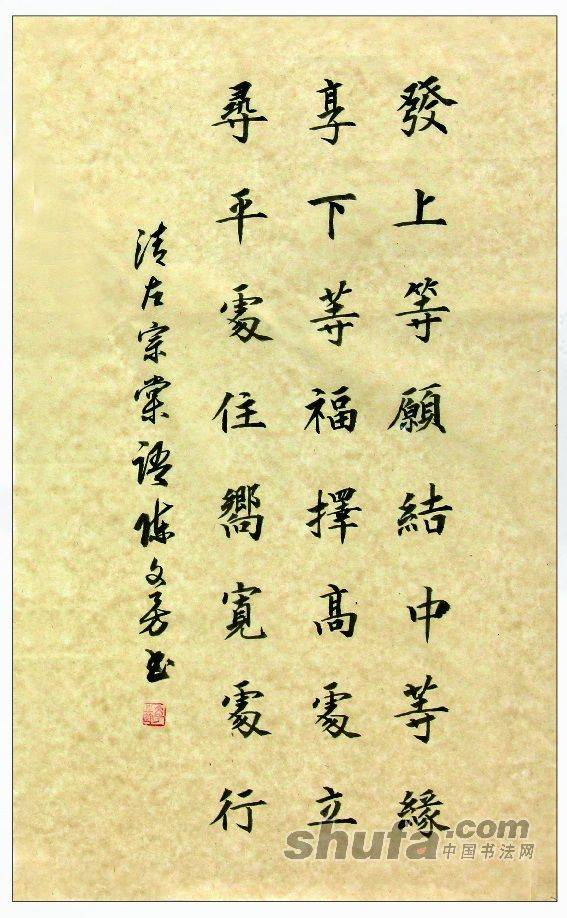 發上等願結中等緣
享下等福擇高處立
尋平處住嚮寬處行
清左宗棠語陳文芳书
shufa.com
中国书法网